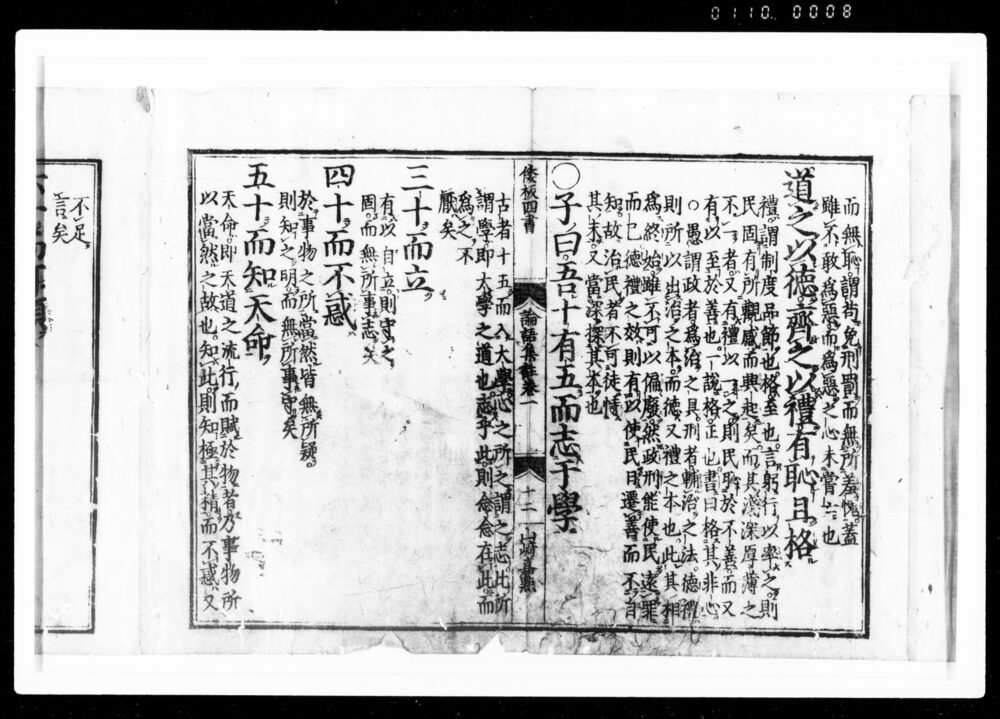 0110 0008
而無恥。謂苟免刑罰。而無所羞愧。蓋
雖不敢爲惡。而爲惡之心未嘗亡也
道之以德齊之以禮有恥且格
禮。謂制度品節也。格至也。言躬行以率之。則
民固有所觀感而興起矣。而其淺深厚薄之
不一者。又有禮以一之。則民恥於不善。而又
有以至於善也。一說。格正也。書曰格其非心
○愚謂政者爲治之具。刑者輔治之法。德禮
則所以出治之本。而德又禮之本也。此其相
爲終始。雖不可以偏廢。然政刑能使民遠罪
而已。德禮之效。則有以使民日遷善而不自
知。故治民者不可徒恃
其末。又當深探其本也
○子曰吾十有五而志于學
倭板四書
論語集註卷一
十二
古者十五而入大學。心之所之謂之志。此所
謂學。即大學之道也。志乎此。則念念在此。而
爲之不
厭矣
三十而立
有以自立。則守之
固。而無所事志矣
四十而不惑
於事物之所當然。皆無所疑。
則知之明。而無所事守矣
五十而知天命
天命。即天道之流行。而賦於物者。乃事物所
以當然之故也。知此。則知極其精。而不惑。又
不足
言矣